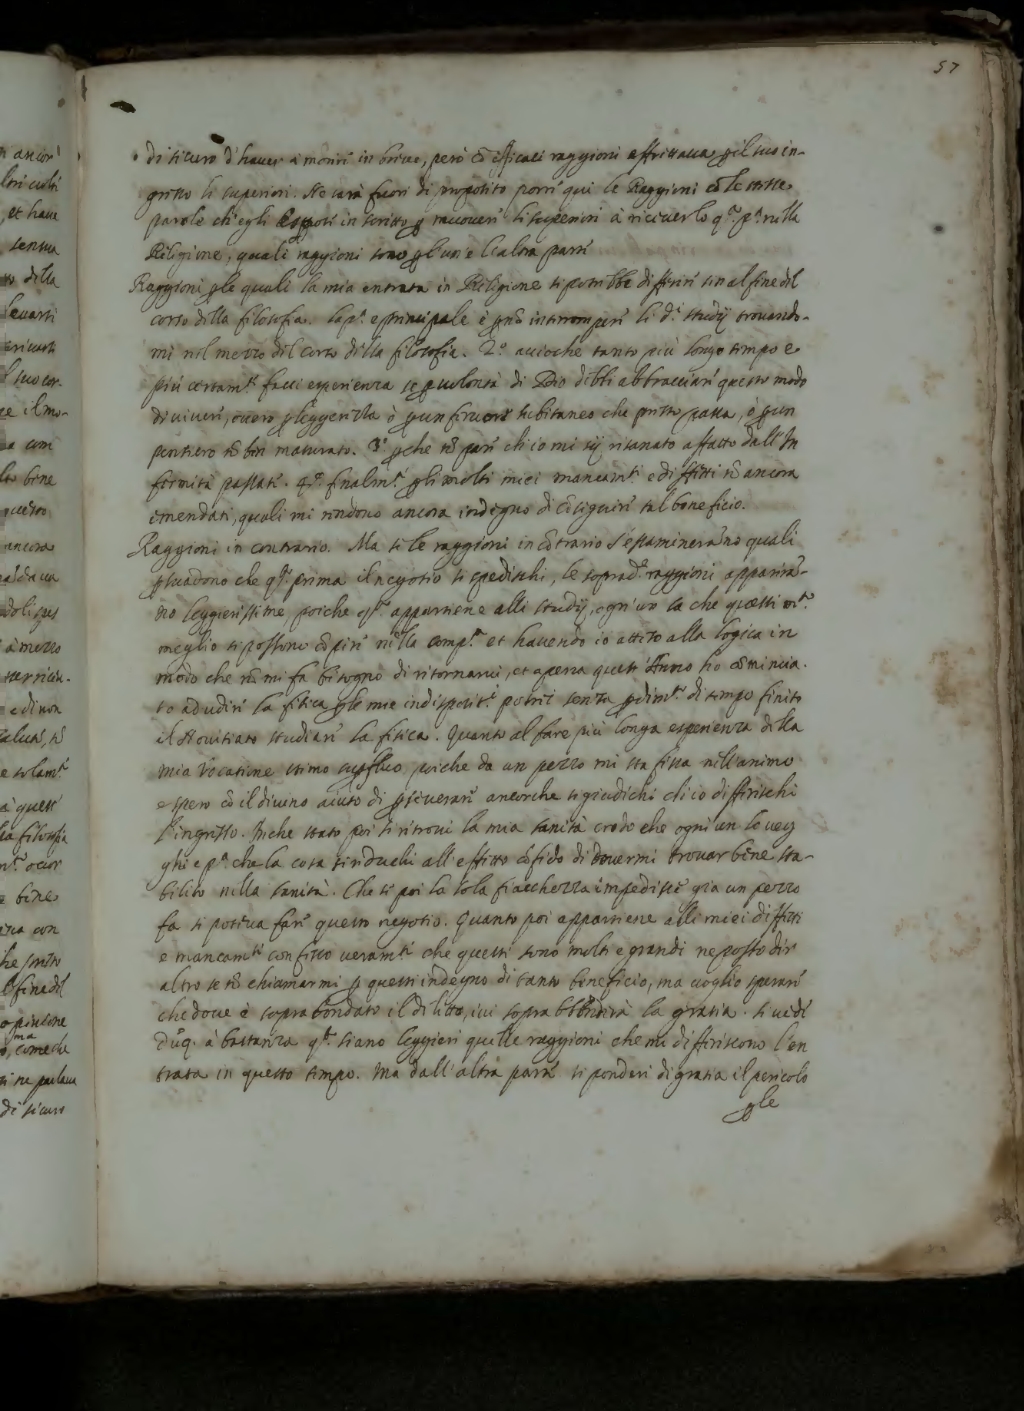 57
di sicuro d'haver à morir in breve, però cō efficaci raggioni affrettava ꝑ il suo in-
gresso li superiori. Ne sarà fuori di proposito porri qui le Raggioni cō le stesse
parole ch'egli espose in scritto ꝑ muoveri li superiori à riceverlo qᵗᵒ pᵃ nella
Religione, quali raggioni sono ꝑ l'una e l'altra parte
Raggioni ꝑ le quali la mia entrata in Religione si potrebbe differiri sin al fine del
corso della filosofia. La pᵃ e principale è ꝑ nō interromperi li dⁱ studij trovando-
mi nel mezzo del corso della filosofia. 2ᵃ accioche tanto più longo tempo e
più certamᵗᵉ facci esperienza se ꝑ volontà di Dio debbi abbracciari questo modo
di viveri, overo ꝑ leggerezza ò ꝑ un fervore subitaneo che presto passa, ò ꝑ un
pensiero nō ben maturato. 3ᵃ ꝑche nō pari ch'io mi sij risanato affatto dall'In
fermità passate. 4ᵃ finalmᵗᵉ ꝑ li molti miei mancamᵗⁱ e diffetti nō ancora
emendati, quali mi rendono ancora indegno di cōseguiri tal beneficio.
Raggioni in contrario. Ma si le raggioni in cōtrario s'essamineranno quali
ꝑsuadono che qᵗᵒ prima il negotio si spedischi, le sopradᵉ raggioni appariran-
no leggierissime, poiche qᵗᵒ appartiene alli studij, ogn'uno sa che questi
meglio si possono cōpiri nella compᵃ et havendo io atteso alla logica in
modo che nō mi fa bisogno di ritornarvi, et apena quest'Anno ho cōmincia-
to ad udiri la fisica ꝑ le mie indispositⁱ potrò senza ꝑdimᵗᵒ di tempo finito
il Novitiato studiari la fisica. Quanto al fare più longa esperienza della
mia Vocatione stimo suꝑfluo, poiche da un pezzo mi sta fissa nell'animo
e spero cō il divino aiuto di ꝑseverari ancorche si giudichi ch'io differischi
l'ingresso. In che stato poi si ritrovi la mia sanità credo che ogni un lo veg
ghi e pᵃ che la cosa si riduchi all'effetto cōfido di dovermi trovar bene sta-
bilito nella sanità. Che se poi la sola fiacchezza impedisse già un pezzo
fa si poteva fari questo negotio. Quanto poi appartiene alli miei diffetti
e mancamᵗⁱ confesso veramᵗᵉ che questi sono molti e grandi ne posso dir
altro se nō chiamarmi ꝑ questi indegno di tanto beneficio, ma voglio sperari
che dove è soprabondato il delitto, ivi soprabbonderà la gratia. si vedi
dūqᵉ à bastanza qᵗᵒ siano leggieri quelle raggioni che mi differiscono l'en
trata in questo tempo. Ma dall'altra parti si ponderi di gratia il pericolo
ꝑ le